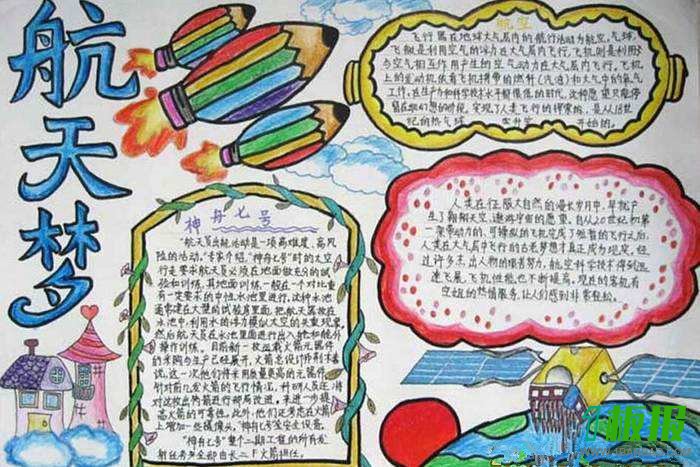 航天梦
航空
飞行器在地球大气层内的航行活动为航空。气球、
飞艇是利用空气的浮力在大气层内飞行,飞机则是利用
与空气相互作用产生的空气动力在大气层内飞行。飞机
上的发动机依靠飞机携带的燃料(汽油)和大气中的氧气
工作。在生产力和科学技术水平都很低的时代,这种愿望只能停
留在幻想的阶段。实现了人类飞行的理想的,是从18世
纪的热气球 开始的。
人类在征服大自然的漫长岁月中,早就产
生了翱翔天空、遨游宇宙的愿望。自从20世纪初第一
架带动力的、可操纵的飞机完成了短暂的飞行之后,
人类在大气层中飞行的古老梦想才真正成为现实。经
过许多杰出人物的艰苦努力,航空科学技术得到迅
速飞展,飞机性能也不断提高。现在的客机有
空姐的热情服务,让人们感到非常轻松。
神舟七号
"航天员出舱活动是一项高难度、高风
险的活动。"专家介绍,"神舟七号"时的太空
行走要求航天员必须在地面做充分的试
验和训练。其地面训练一般在一个对比重
有一定要求的中性水池里进行,这种水池
通常建在大楼的试验房里面,把航天器放在
水池中,利用水的浮力模拟太空的失重现象,
然后航天员在水池里进行出入舱和舱外
操作训练。目前新一枚运载火箭元器件
的采购与生产已经展开,火箭总设计师荆木春
说,这一次他们将采用质量更高的元器件。
针对前几发火箭的飞行情况,科研人员还将
对这枚长征箭进行部局改进,来进一步提
高火箭的可靠性。此外,他们还考虑在火箭
上增加一些摄像头,"神舟七号"全安全设备。
"神舟七号"整个二期工程的所有发
射任务全部由长二F火箭担任。
板报